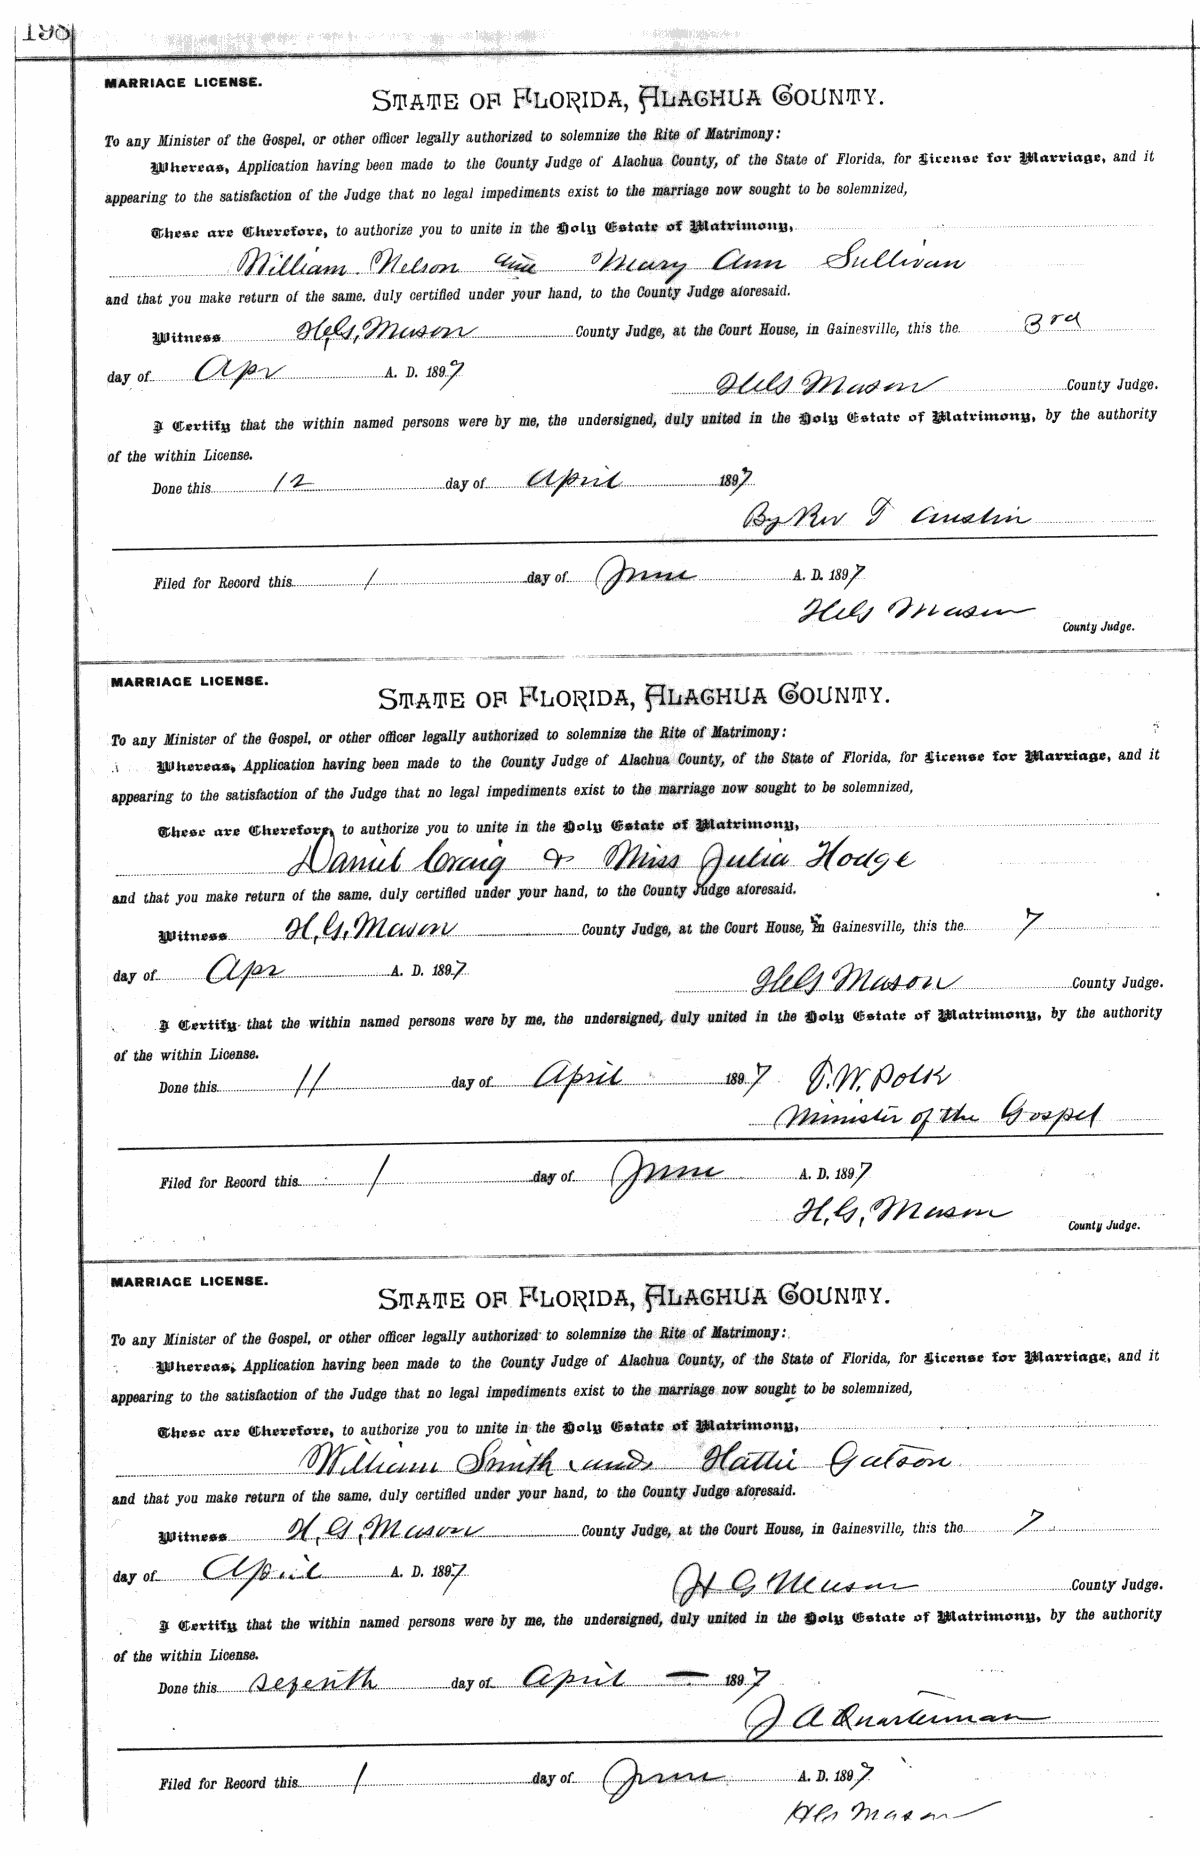 198
MARRIAGE LICENSE.
STATE OF FLORIDA, ALACHUA COUNTY.
To any Minister of the Gospel, or other officer legally authorized to solemnize the Rite of Matrimony:
Whereas, Application having been made to the County Judge of Alachua County, of the State of Florida, for License for Marriage, and it
appearing to the satisfaction of the Judge that no legal impediments exist to the marriage now sought to be solemnized,
These are Therefore, to authorize you to unite in the Holy Estate of Matrimony,
William Nelson and Mary Ann Sullivan
and that you make return of the same, duly certified under your hand, to the County Judge aforesaid.
Witness H.G. Mason County Judge, at the Court House, in Gainesville, this the 3rd
day of Apr A. D. 1897
H G Mason County Judge.
I Certify that the within named persons were by me, the undersigned, duly united in the Holy Estate of Matrimony, by the authority
of the within License.
Done this 12 day of April 1897
By Rev T Austin
Filed for Record this 1 day of June A. D. 1897
H G Mason
County Judge.
MARRIAGE LICENSE.
STATE OF FLORIDA, ALACHUA COUNTY.
To any Minister of the Gospel, or other officer legally authorized to solemnize the Rite of Matrimony:
Whereas, Application having been made to the County Judge of Alachua County, of the State of Florida, for License for Marriage, and it
appearing to the satisfaction of the Judge that no legal impediments exist to the marriage now sought to be solemnized,
These are Therefore, to authorize you to unite in the Holy Estate of Matrimony,
Daniel Craig & Miss Julia Hodge
and that you make return of the same, duly certified under your hand, to the County Judge aforesaid.
Witness H.G. Mason County Judge, at the Court House, in Gainesville, this the 7
day of Apr A. D. 1897
H G Mason County Judge.
I Certify that the within named persons were by me, the undersigned, duly united in the Holy Estate of Matrimony, by the authority
of the within License.
Done this 11 day of April 1897 T. W. Polk
Minister of the Gospel
Filed for Record this 1 day of June A. D. 1897
H. G. Mason
County Judge.
MARRIAGE LICENSE.
STATE OF FLORIDA, ALACHUA COUNTY.
To any Minister of the Gospel, or other officer legally authorized to solemnize the Rite of Matrimony:
Whereas, Application having been made to the County Judge of Alachua County, of the State of Florida, for License for Marriage, and it
appearing to the satisfaction of the Judge that no legal impediments exist to the marriage now sought to be solemnized,
These are Therefore, to authorize you to unite in the Holy Estate of Matrimony,
William Smith and Hattie Gatson
and that you make return of the same, duly certified under your hand, to the County Judge aforesaid.
Witness H. G. Mason County Judge, at the Court House, in Gainesville, this the 7
day of April A. D. 1897
H G Mason County Judge.
I Certify that the within named persons were by me, the undersigned, duly united in the Holy Estate of Matrimony, by the authority
of the within License.
Done this seventh day of April — 1897
J A Quarterman
Filed for Record this 1 day of June A. D. 1897
H G Mason